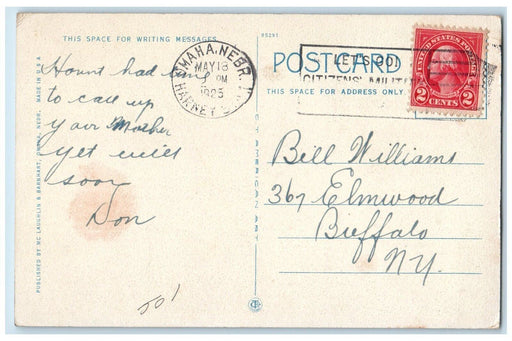 THIS SPACE FOR WRITING MESSAGES
Havnt had time
to call up
your Mother
yet will
soon
Don
501
PUBLISHED BY MC LAUGHLIN & BARNHART, OMAHA, NEBR. MADE IN U.S.A
OMAHA, NEBR.
MAY 18
PM
1925
HARNEY
95291
POSTCARD
THIS SPACE FOR ADDRESS ONLY
LET'S GO!
CITIZENS' MILIT
UNITED STATES POSTAGE
2 CENTS 2
Bill Williams
367 Elmwood
Buffalo
N.Y.